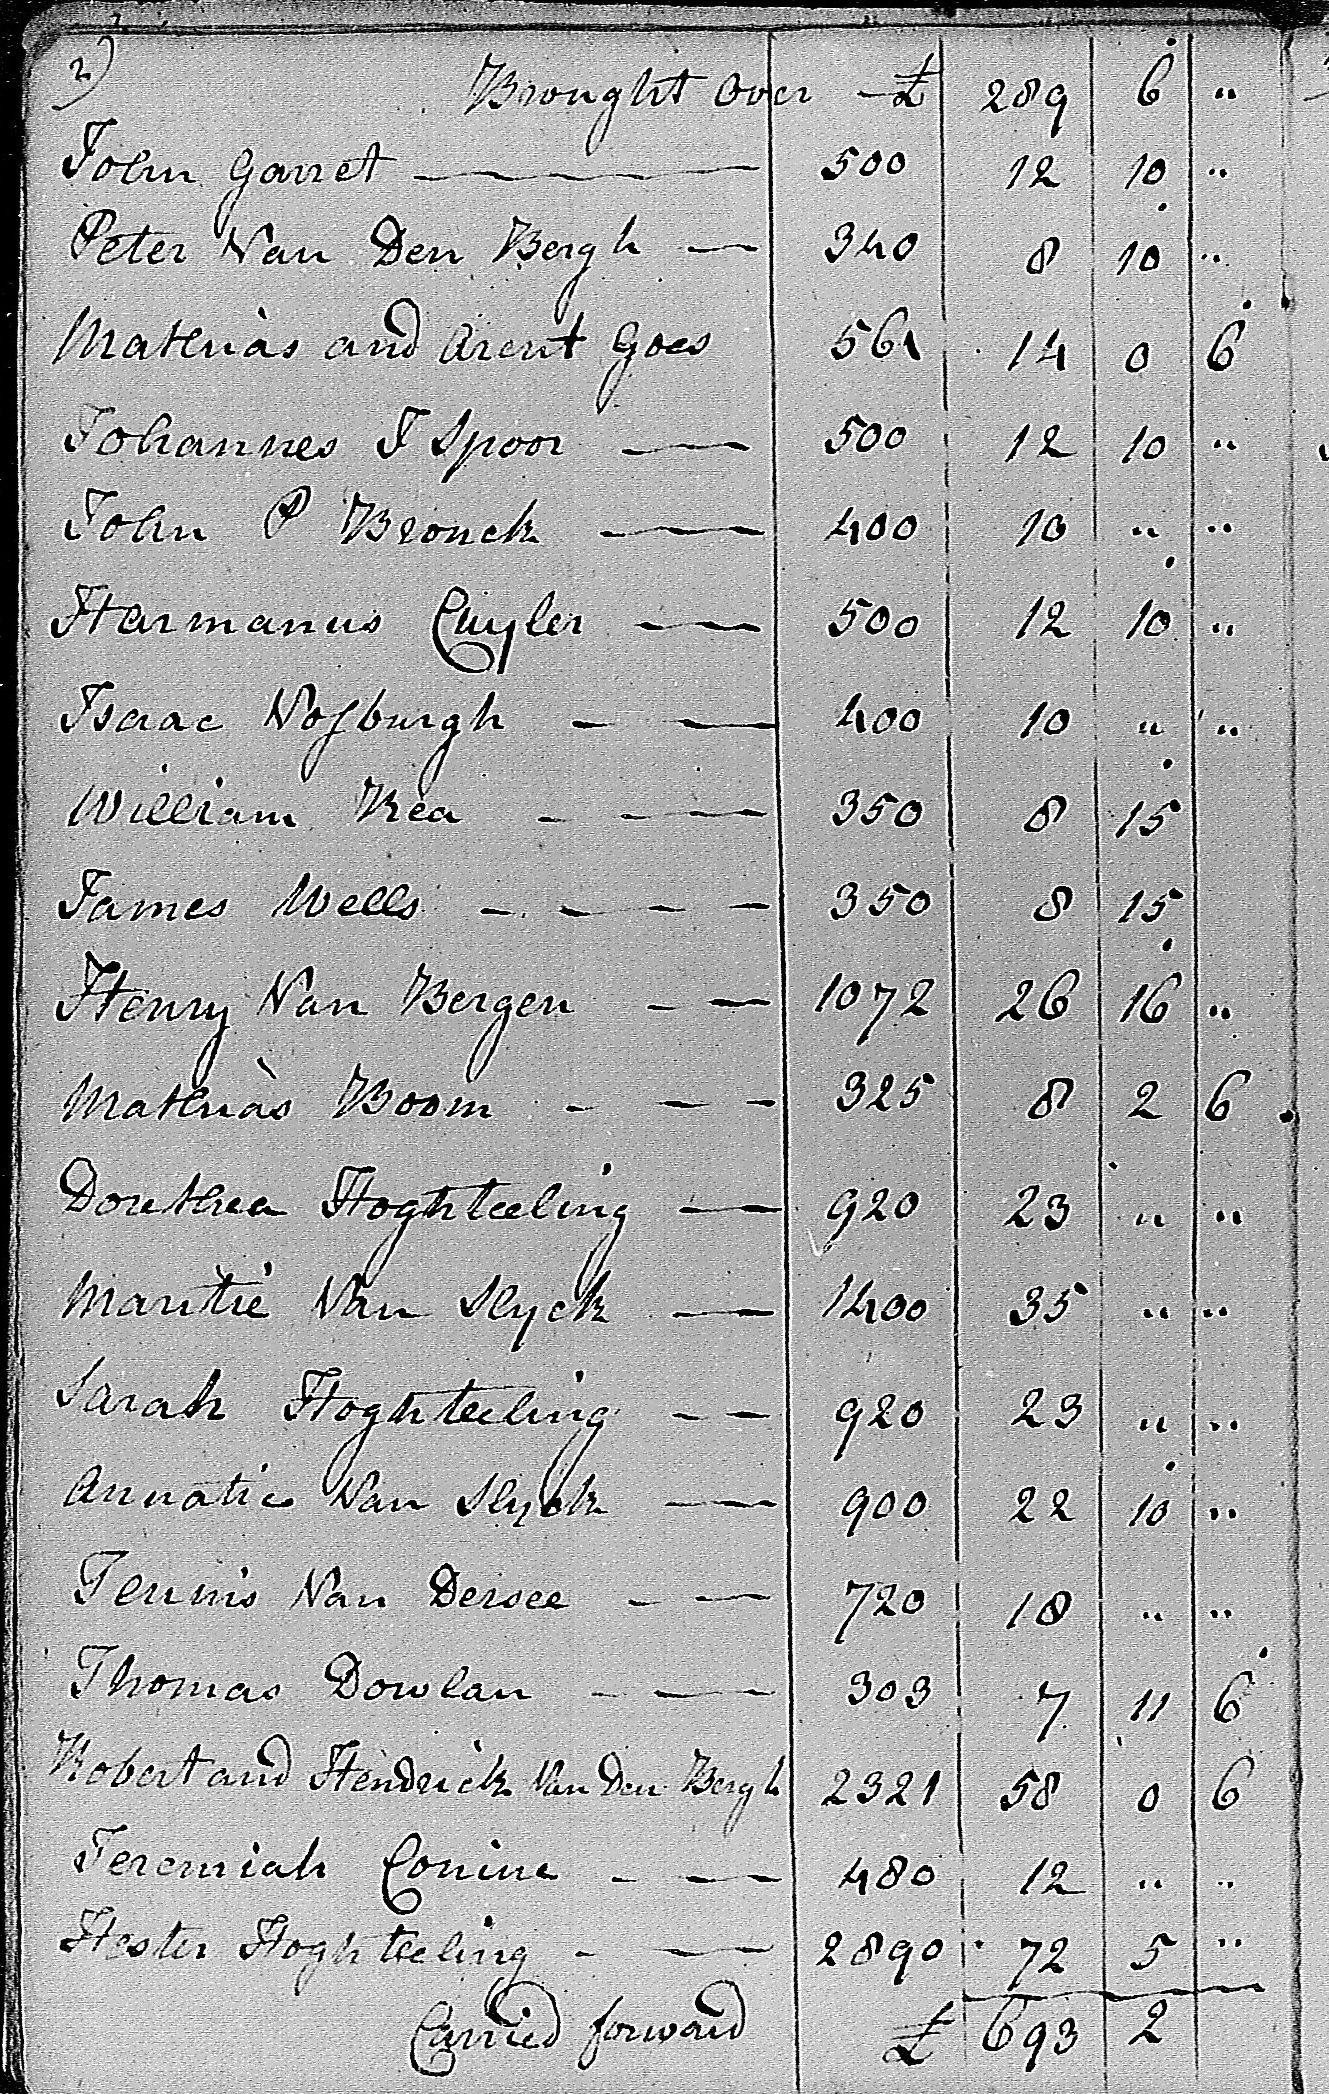 2)
Brought Over £ 289 6 "
John Garret 500 12 10 "
Peter Van Den Bergh 340 8 10 "
Mathias and Arent Goes 561 14 0 6
Johannes J Spoor 500 12 10 "
John P Bronck 400 10 " "
Harmanus Cuyler 500 12 10 "
Isaac Vosburgh 400 10 " "
William Rea 350 8 15
James Wells 350 8 15
Henry Van Bergen 1072 26 16 "
Mathias Boom 325 8 2 6
Dorethea Hoghteeling 920 23 " "
Maritie Van Slyck 1400 35 " "
Sarah Hoghteeling 920 23 " "
Annatie Van Slyck 900 22 10 "
Teunis Van Dersee 720 18 " "
Thomas Dowlan 303 7 11 6
Robert and Hendrick Van Den Bergh 2321 58 0 6
Jeremiah Conine 480 12 " "
Hester Hoghteeling 2890 72 5 "
Carried forward £ 693 2